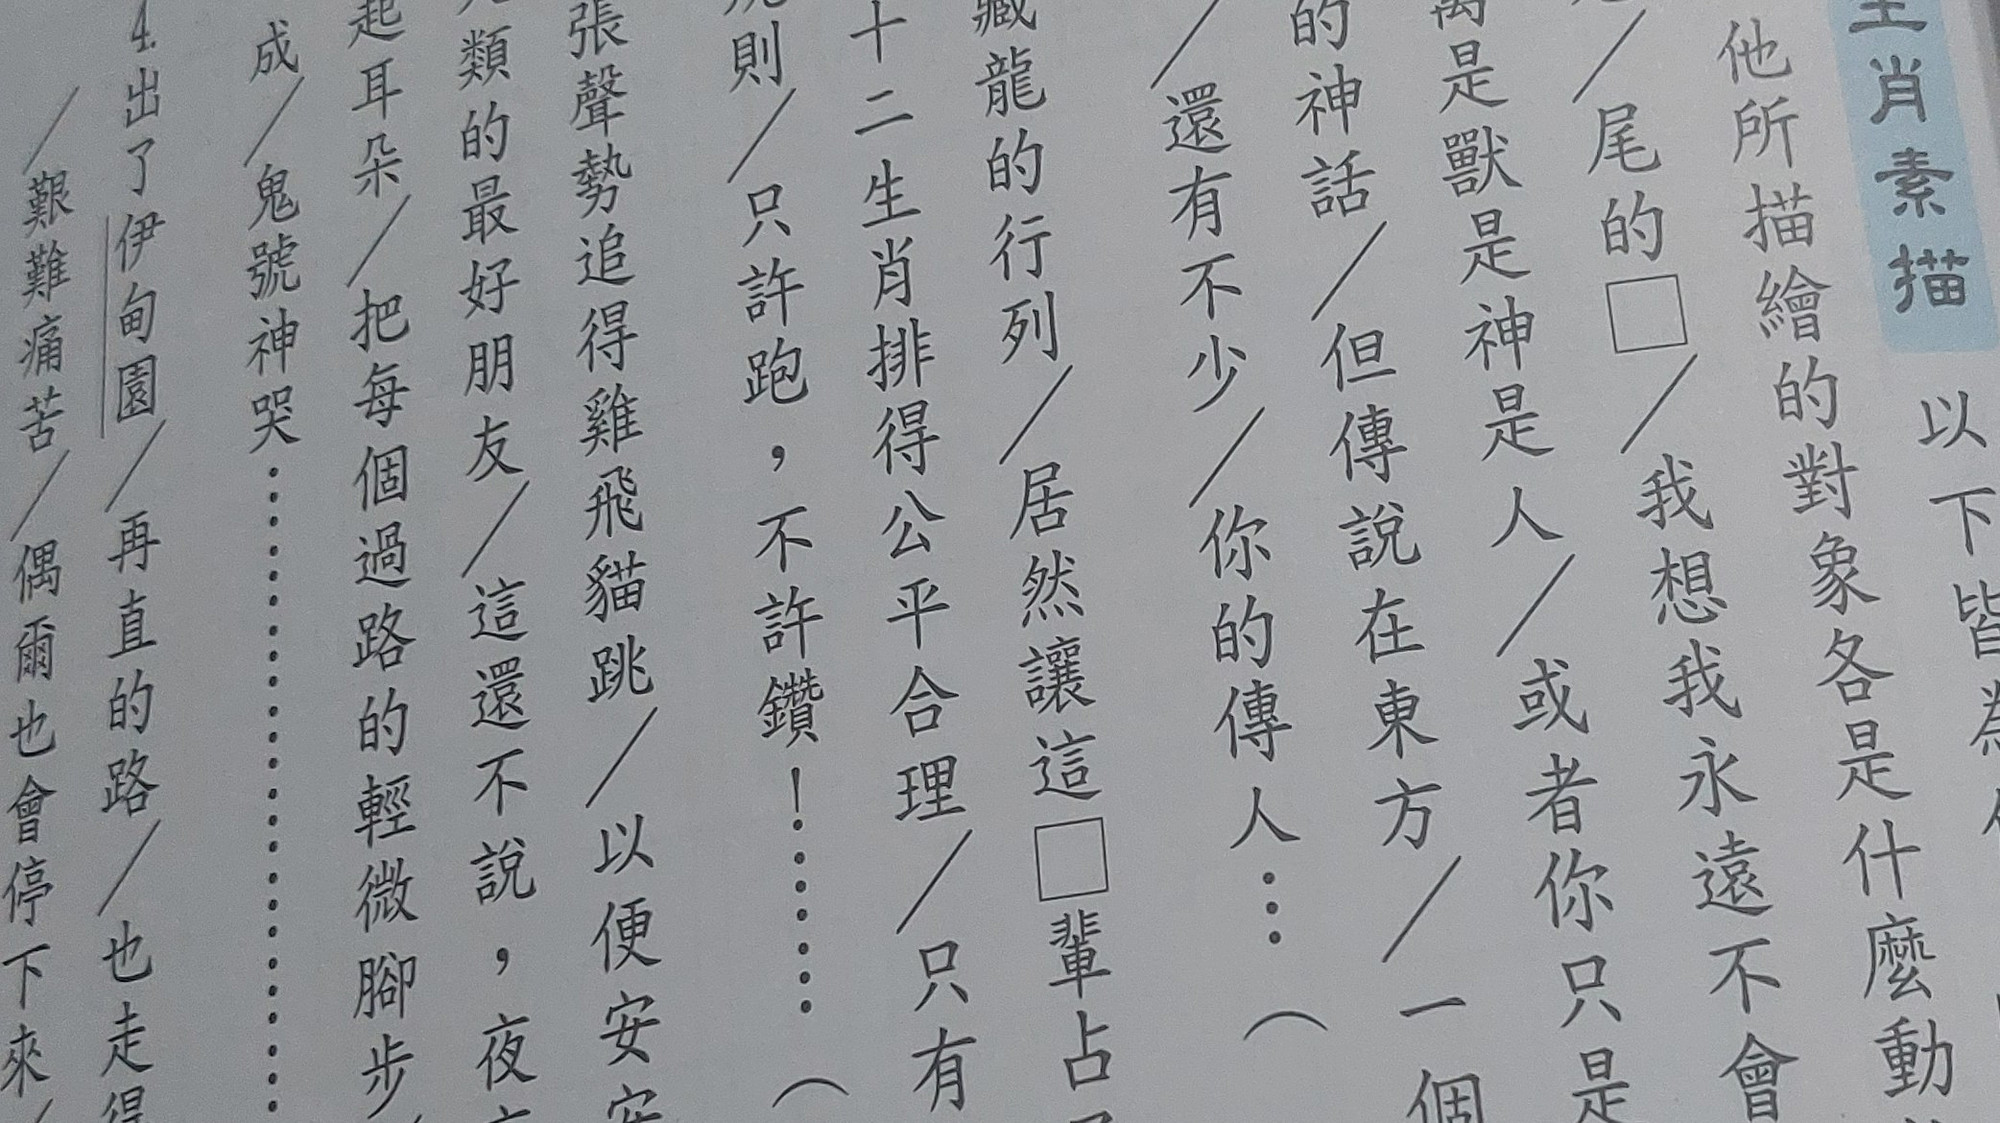 生肖素描 以下皆為
他所描繪的對象各是什麼動
／尾的□／我想我永遠不會
是獸是神是人／或者你只是
的神話／但傳說在東方／一個
／還有不少／你的傳人…（
藏龍的行列／居然讓這□輩占
十二生肖排得公平合理／只有
則／只許跑，不許鑽！……（
張聲勢追得雞飛貓跳／以便安安
類的最好朋友／這還不說，夜
起耳朵／把每個過路的輕微腳步／
成／鬼號神哭……………………
4.出了伊甸園／再直的路／也走得
／艱難痛苦／偶爾也會停下來／